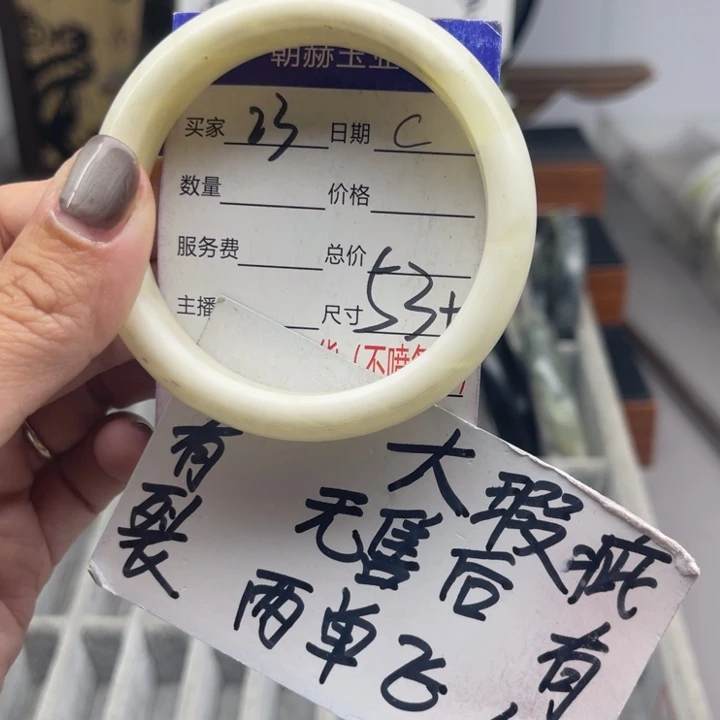 朝赫玉业
买家 23 日期 C
数量 价格
服务费 总价
主播 尺寸 53+
(不喷
有裂
大瑕疵
无售后
两单飞
有